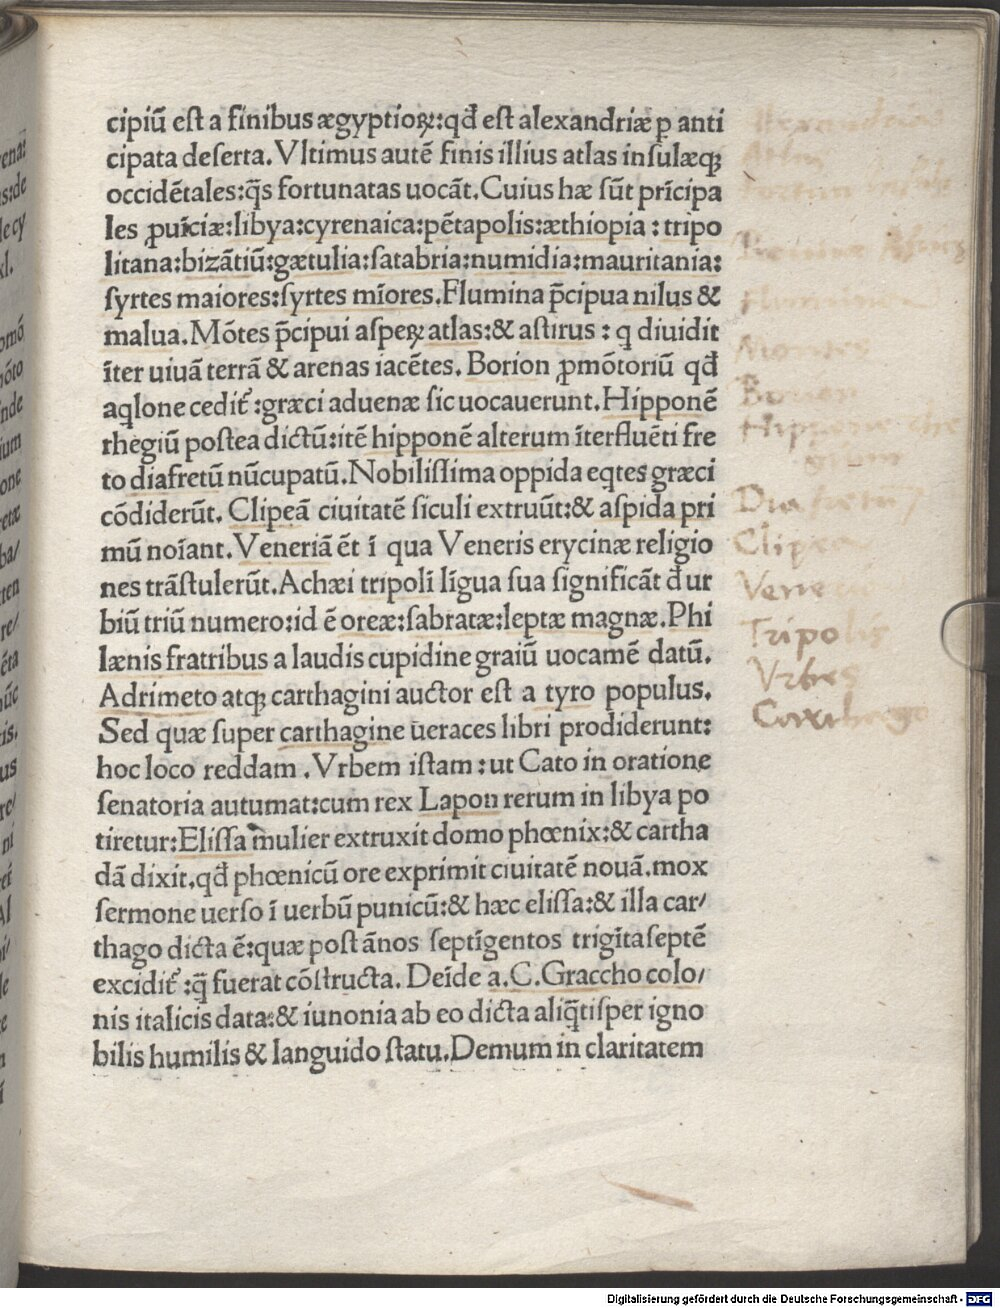 cipiū est a finibus ægyptioꝝ:qđ est alexandriæ p anti
cipata deserta. Vltimus autē finis illius atlas insulæqꝫ
occidētales:q̄s fortunatas uocāt. Cuius hæ sūt prīcipa
les ꝓuīciæ:libya:cyrenaica:pētapolis:æthiopia: tripo
litana:bizātiū:gætulia:satabria:numidia:mauritania:
syrtes maiores:syrtes mīores. Flumina p̄cipua nilus &
malua. Mōtes p̄cipui aspeꝝ atlas:& astirus: q diuidit
īter uiuā terrā & arenas iacētes. Borion ꝓmōtoriū qđ
aqlone cedit᷑:græci aduenæ sic uocauerunt. Hipponē
rhegiū postea dictū:itē hipponē alterum īterfluēti fre
to diafretū nūcupatū. Nobilissima oppida eqtes græci
cōdiderūt. Clipeā ciuitatē siculi extruūt:& aspida pri
mū noīant. Veneriā ēt ī qua Veneris erycinæ religio
nes trāstulerūt. Achæi tripolī līgua sua significāt đ ur
biū triū numero:id ē oreæ:sabratæ:leptæ magnæ. Phi
lænis fratribus a laudis cupidine graiū uocamē datū.
Adrimeto atqꝫ carthagini auctor est a tyro populus.
Sed quæ super carthagine ueraces libri prodiderunt:
hoc loco reddam. Vrbem istam: ut Cato in oratione
senatoria autumat:cum rex Lapon rerum in libya po
tiretur:Elissa mulier extruxit domo phœnix:& cartha
dā dixit.qđ phœnicū ore exprimit ciuitatē nouā.mox
sermone uerso ī uerbū punicū:& hæc elissa:& illa car/
thago dicta ē:quæ post ānos septīgentos trigītaseptē
excidit᷑:q̄ fuerat cōstructa. Deīde a.C.Graccho colo/
nis italicis data:& iunonia ab eo dicta aliq̄tisper igno
bilis humilis & languido statu. Demum in claritatem
Flumina
Montes
Borion
Diafretu
Clipea
Tripolis
Vrbes
Carthago
Digitalisierung gefördert durch die Deutsche Forschungsgemeinschaft - DFG